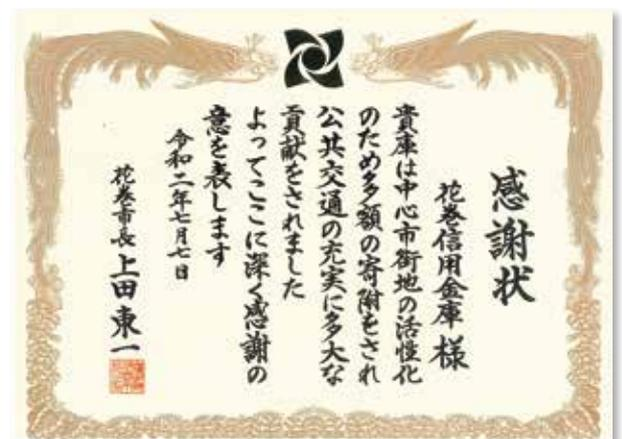 感謝状
花巻信用金庫 様
貴庫は中心市街地の活性化
のため多額の寄附をされ
公共交通の充実に多大な
貢献をされました
よってここに深く感謝の
意を表します
令和二年七月七日
花巻市長 上田東一